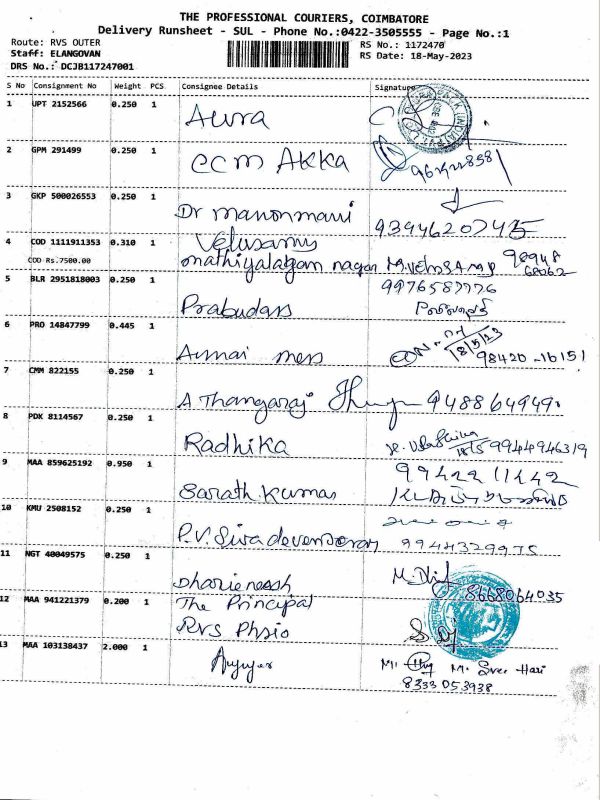 THE PROFESSIONAL COURIERS, COIMBATORE
Delivery Runsheet - SUL - Phone No.:0422-3505555 - Page No.:1
Route: RVS OUTER
RS No.: 1172470
Staff: ELANGOVAN
RS Date: 18-May-2023
DRS No.: DCJB117247001
S No Consignment No Weight PCS Consignee Details Signature
1 UPT 2152566 0.250 1 Aura
2 GPM 291499 0.250 1 CCM AKKA
3 GKP 500026553 0.250 1 Dr manonmani 9394620745
4 COD 1111911353 0.310 1 Velusamy
COD Rs.7500.00 mathiyalagam nagar M.VelusAmy 98948
68062
5 BLR 2951818003 0.250 1 Prabudass 9976587776
6 PRO 14847799 0.445 1 Annai mess 18/5/23 98420-16151
7 CMM 822155 0.250 1 A Thangaraj 948864949
8 PDK 8114567 0.250 1 Radhika 18/5 9944946319
9 MAA 859625192 0.950 1 Sarath.kumar 9942211442
10 KMU 2508152 0.250 1 P.V.Sivadevendaran 9944329975
11 NGT 40049575 0.250 1 Dharieneash 8668064035
12 MAA 941221379 0.200 1 The Principal
RVS Phsio
13 MAA 103138437 2.000 1 M. Sree Hari
8333053938